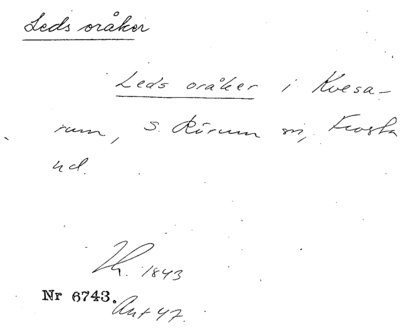 Leds oråker
Leds oråker i Kvesa-
rum, S. Rörum sn, Frosta
hd.
Th. 1843
Nr 6743.
Ant 47.